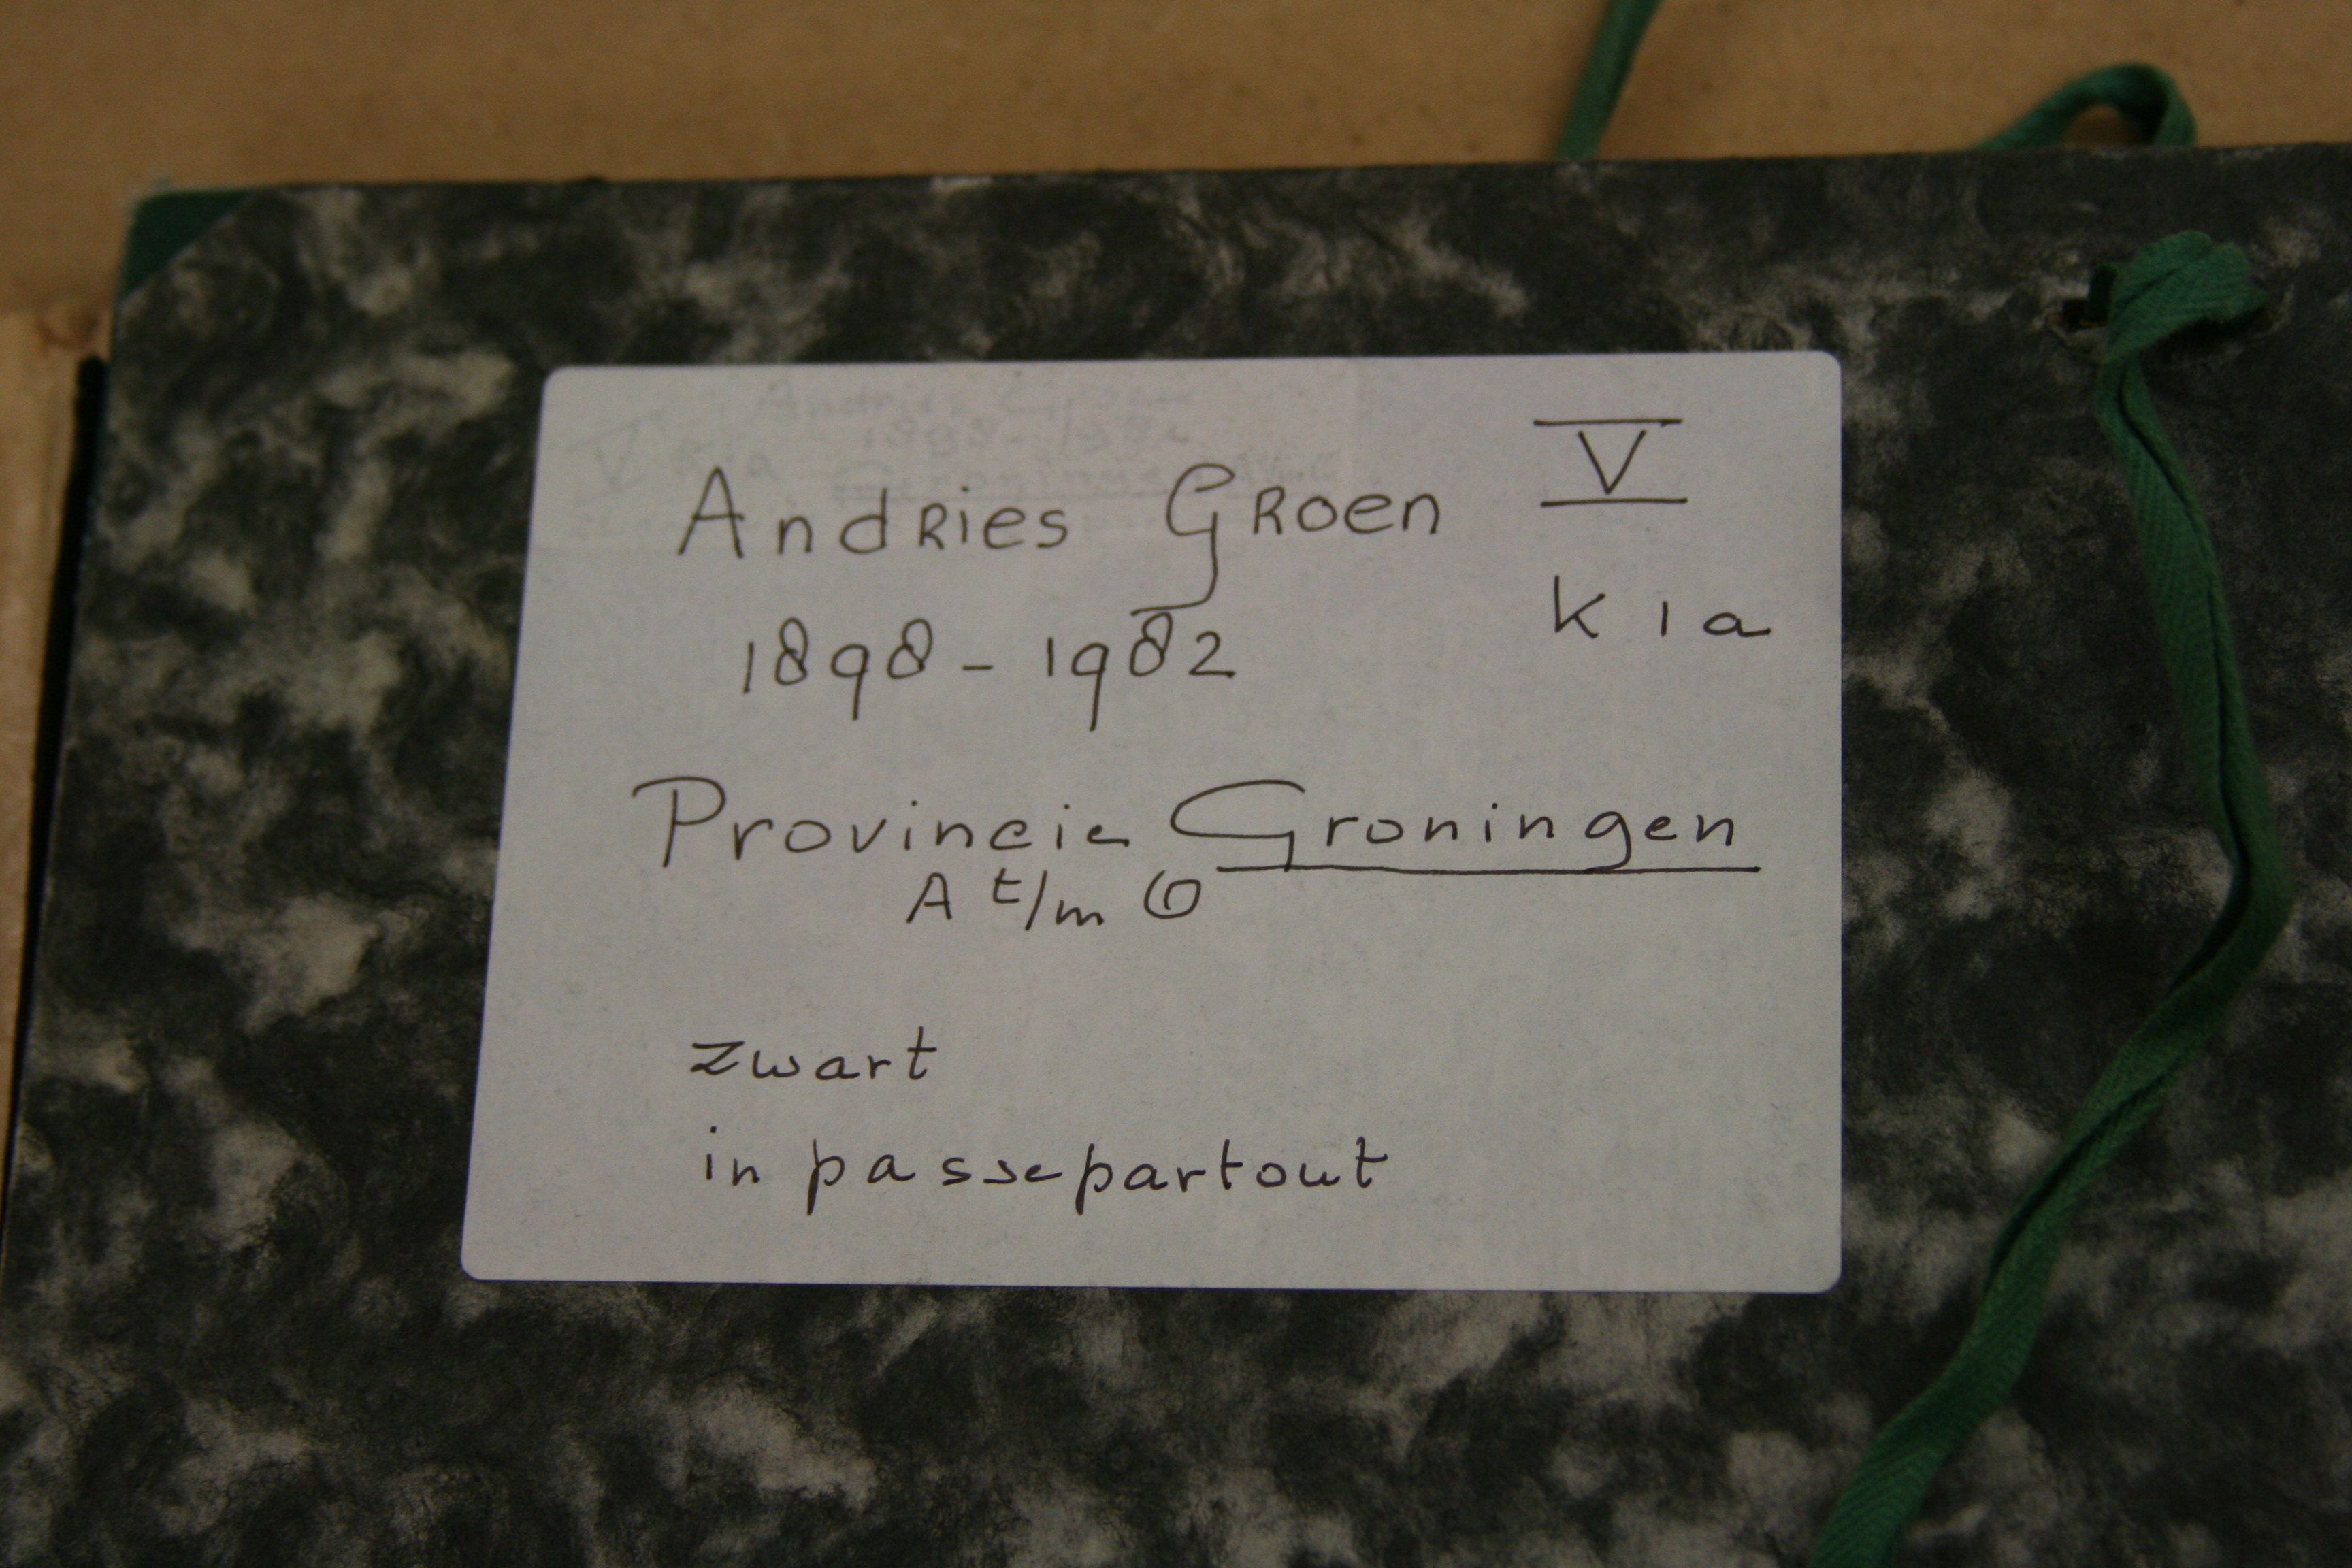 Andries Groen V
1898 - 1982 k 1 a
Provincie Groningen
A t/m O
zwart
in passepartout